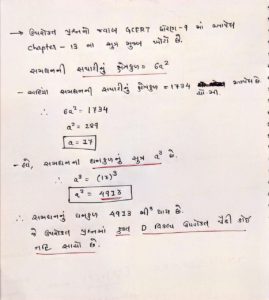 → ઉપરોક્ત પ્રશ્નનો જવાબ GCERT ધોરણ-9 માં આપેલ
Chapter - 13 ના સૂત્ર મુજબ ખોટો છે.
સમઘનની સપાટીનું ક્ષેત્રફળ = 6a²
- અહિયાં સમઘનની સપાટીનું ક્ષેત્રફળ = 1734 આપેલ
∴ 6a² = 1734
a² = 289
a = 17
- હવે, સમઘનના ઘનફળનું સૂત્ર a³ છે.
∴ a³ = (17)³
a³ = 4913
∴ સમઘનનું ઘનફળ 4913 મી³ થાય છે.
જે ઉપરોક્ત પ્રશ્નમાં ફક્ત D વિકલ્પ ઉપરોક્ત પૈકી કોઈ
નહિ સાચો છે.